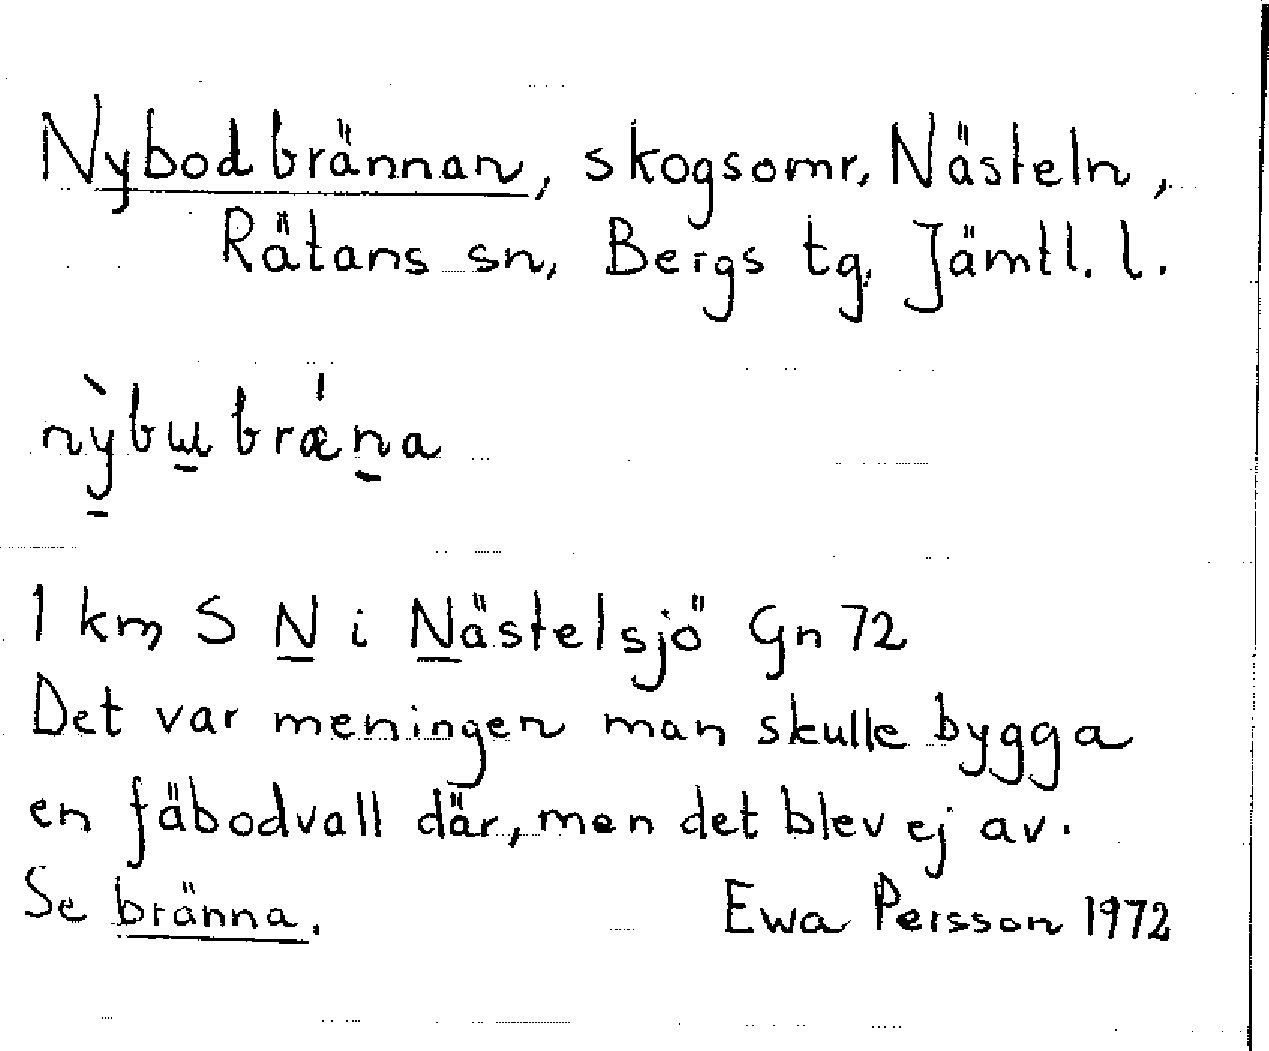 Nybodbrännan, skogsomr, Nästeln,
Rätans sn, Bergs tg. Jämtl. l.
nỳbɯbrǽna
1 km S N i Nästelsjö Gn 72
Det var meningen man skulle bygga
en fäbodvall där, men det blev ej av.
Se bränna.
Ewa Persson 1972